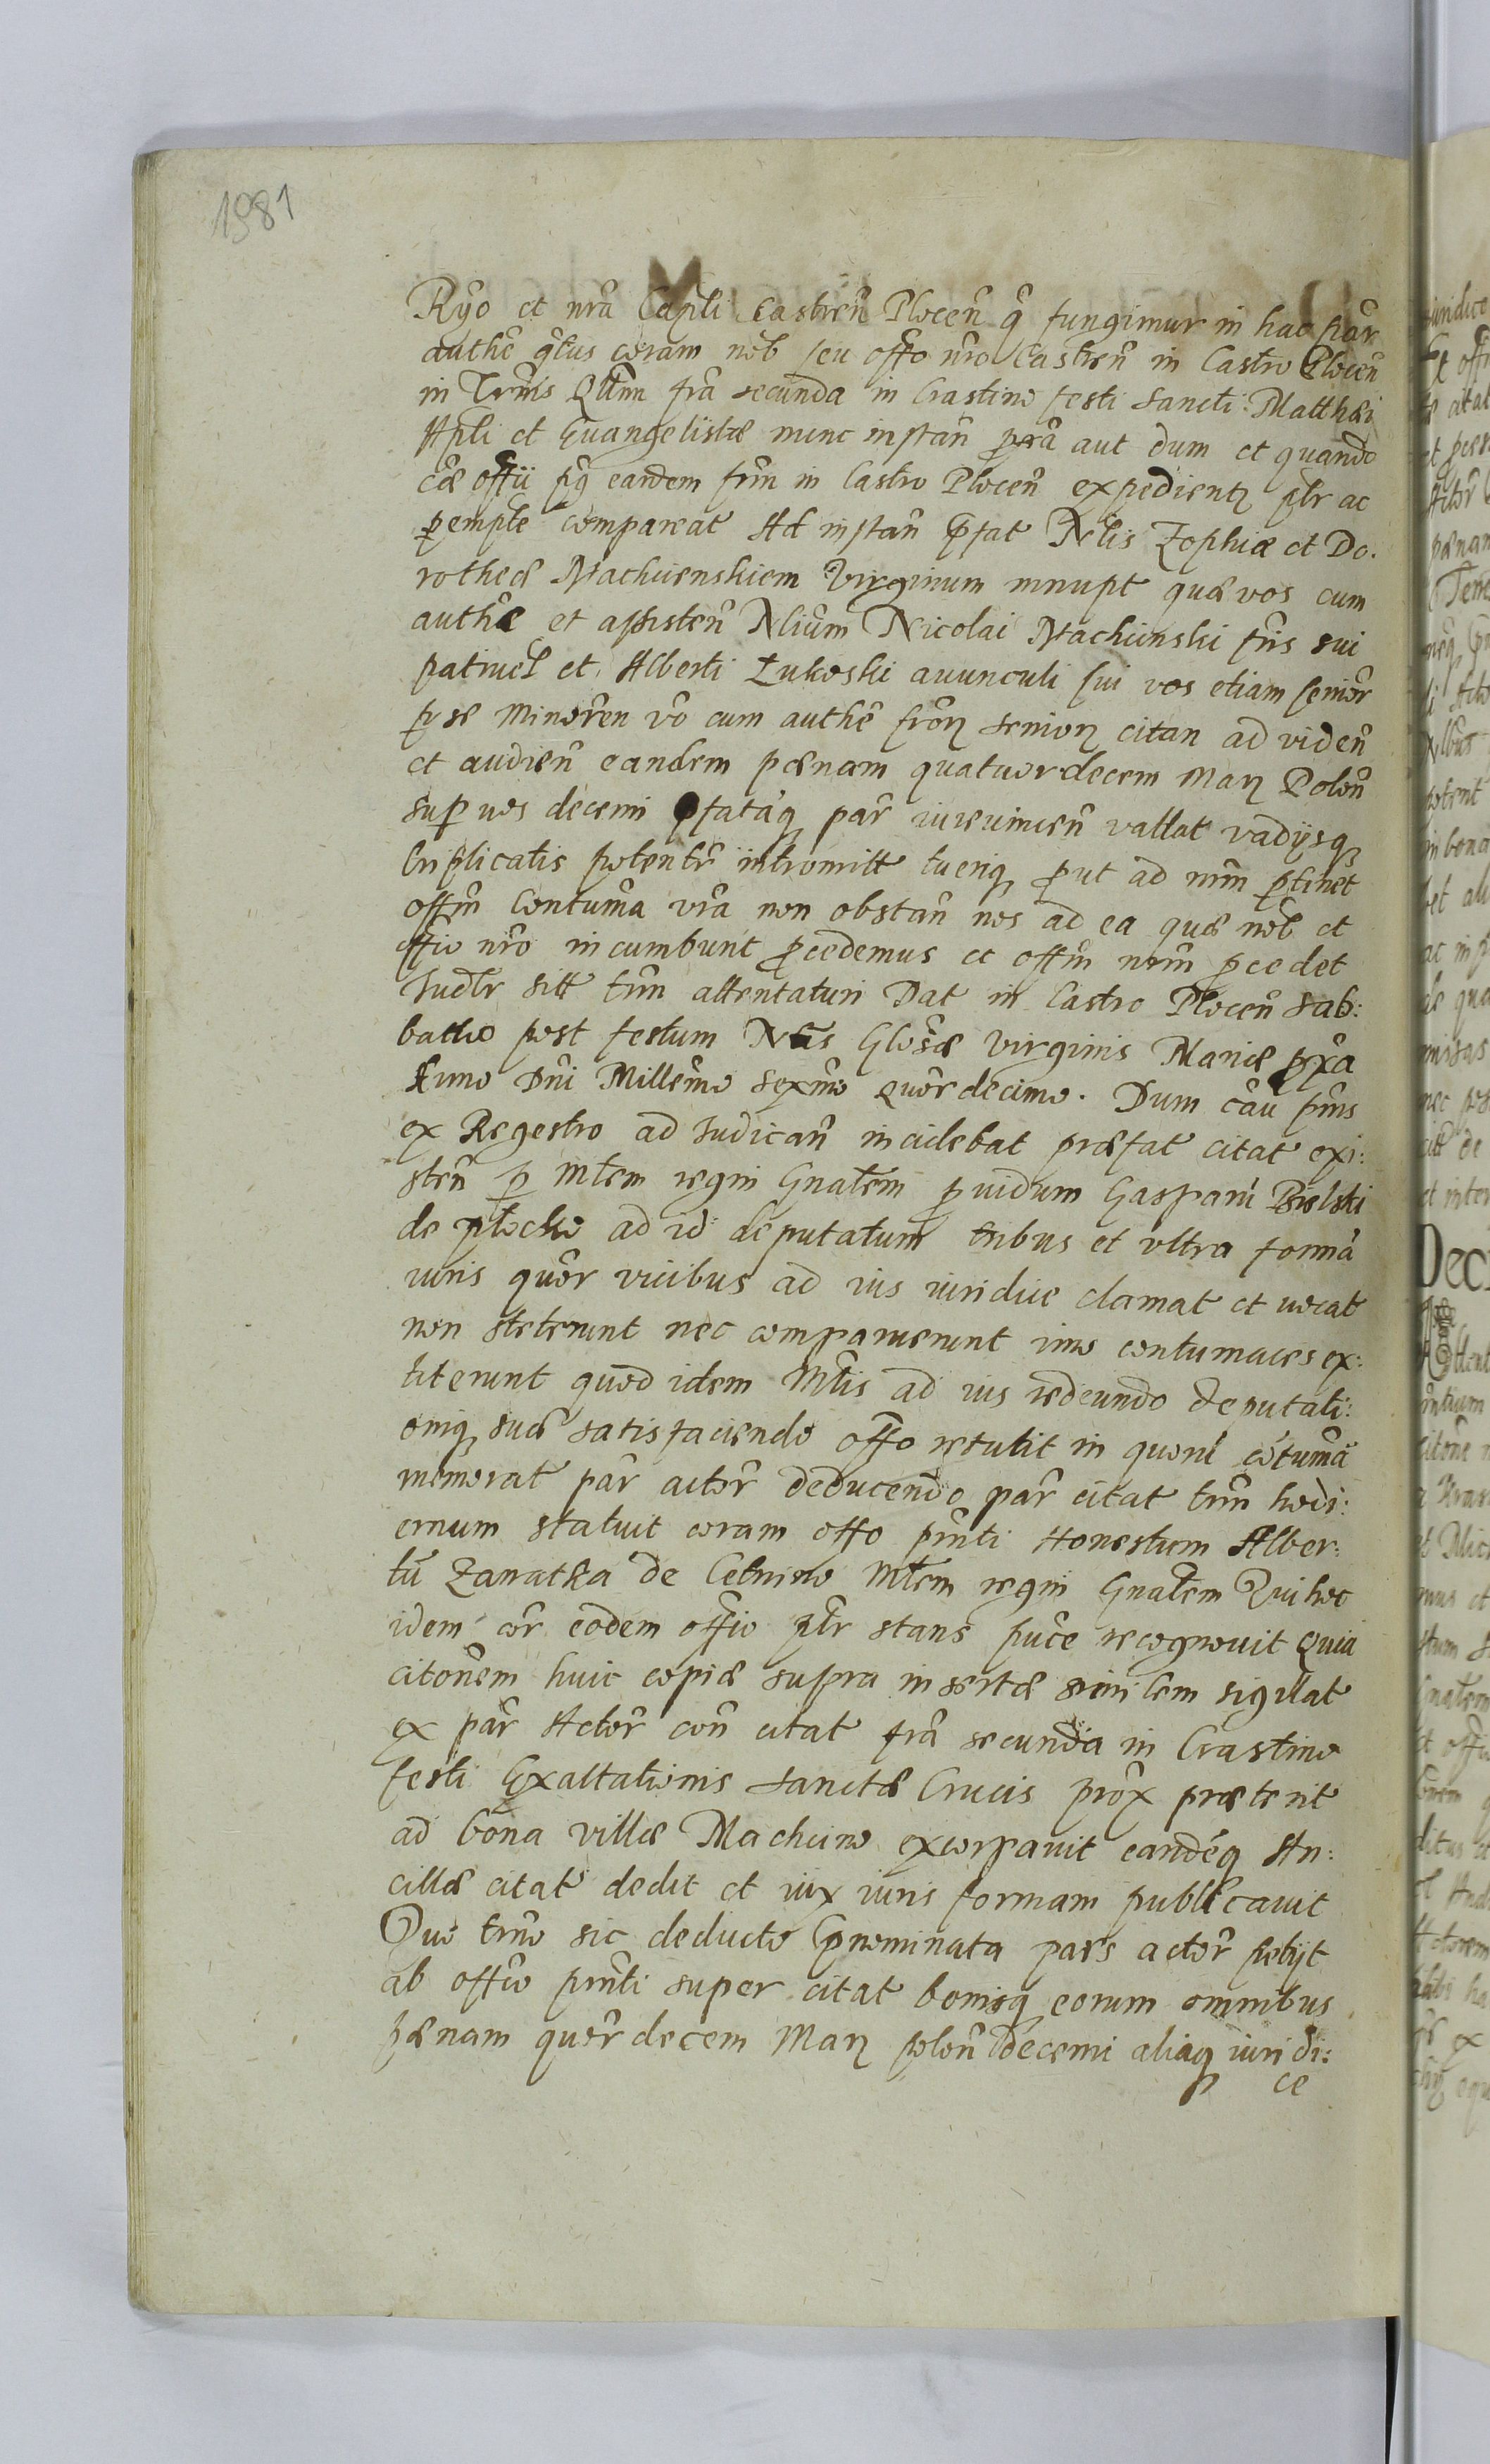 1981
Ryo et nra Capli Castren Plocen q fungimur in hac par
authe qtus coram nob seu offo nro Castren in Castro Plocen
in Trmis Qllm fra secunda in Crastino festi Sancti Matthæi
Apli et Euangelistæ nunc instan pxa aut dum et quando
cæ offii pq eandem frm in Castro Plocen expedientz plr ac
pempte compareat Ad instan pfat Nlis Zophiæ et Do.
rotheæ Machcienskiem Virginum innupt quæ vos cum
authe et assisten Nlium Nicolai Machcinski fris sui
patruel et Alberti Lukoski auunculi sui vos etiam senior
p se Minoren vo cum authe fror senior citan ad viden
et audien eandem pænam quatuordecem Mar Polon
sup vos decerni pfatáq par iureuincen vallat vadijsq
triplicatis potentr intromitt tueriq put ad nrm ptinet
offm Contuma vra non obstan nos ad ea quæ nob et
offio nro incumbunt pcedemus et offm nrm pcedet
Judlr sitt trm attentaturi Dat in Castro Plocen Sab:
batho post festum Ntis Glosæ Virginis Mariæ pxa
Anno Dni Millemo sexmo quor decimo. Dum cau pns
ex Regestro ad Judican incidebat præfat citat exi:
sten p Mtem regni Gnalem puidum Gaspari Bielski
de plocko ad id deputatum tribus et vltra forma
iuris quor vicibus ad ius iuridice clamat et vocat
non steterunt nec comparuerunt imo contumaces ex:
titerunt quod idem Mtis ad ius redeundo deputati:
oniq suæ satisfaciendo offo retulit in quoru cotuma
memorat par actor deducendo par citat trm hodi:
ernum statuit coram offo pnti Honestum Alber:
tu Zawatka de Cetnino Mtem regni Gnalem Qui hoc
idem cor eodem offio plr stans puce recognouit Quia
citonem huic copiæ supra insertæ similem sigillat
ex par Actor con citat fra secunda in Crastino
festi Exaltationis Sanctæ Crucis prox præterit
ad bona villæ Machcino exwrpauit eandéq An:
cillæ citat dedit et iux iuris formam publicauit
Quo trmo sic deducto pnominata pars actor petijt
ab offio pnti super citat bonisq eorum omnibus
pænam quor decem Mar polon decerni aliaq iuridi:
ce